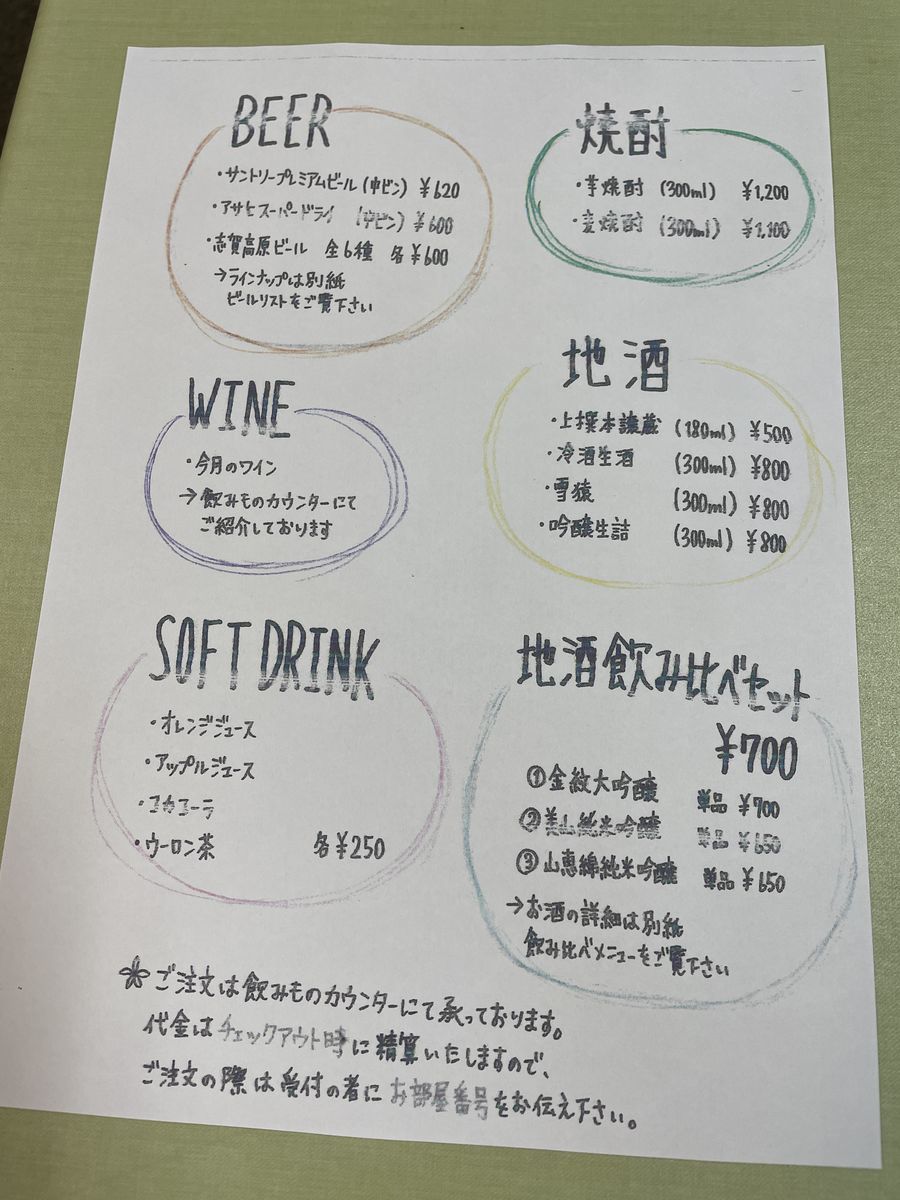 BEER
・サントリープレミアムビール (中ビン) ¥620
・アサヒスーパードライ (中ビン) ¥600
・志賀高原ビール 全6種 各¥600
→ラインナップは別紙
ビールリストをご覧下さい
焼酎
・芋焼酎 (300ml) ¥1,200
・麦焼酎 (300ml) ¥1,100
WINE
・今月のワイン
→飲みものカウンターにて
ご紹介しております
地酒
・上撰本譲蔵 (180ml) ¥500
・冷酒生酒 (300ml) ¥800
・雪猿 (300ml) ¥800
・吟醸生詰 (300ml) ¥800
SOFT DRINK
・オレンジジュース
・アップルジュース
・コカコーラ
・ウーロン茶 各¥250
地酒飲み比べセット
¥700
①金紋大吟醸 単品 ¥700
②美山純米吟醸 単品 ¥650
③山恵綿純米吟醸 単品 ¥650
→お酒の詳細は別紙
飲み比べメニューをご覧下さい
ご注文は飲みものカウンターにて承っております。
代金はチェックアウト時に精算いたしますので、
ご注文の際は受付の者にお部屋番号をお伝え下さい。